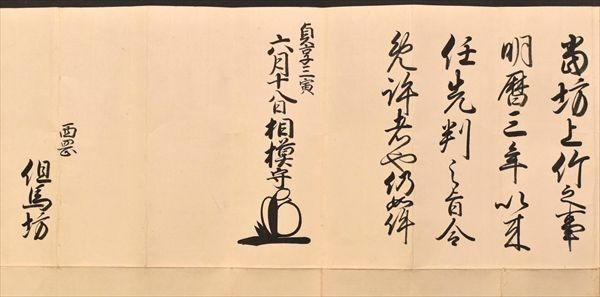 当坊上竹之事
明暦三年以来
任先判之旨令
免許者也仍如件
貞享三寅
六月十八日相模守
西岡
但馬坊